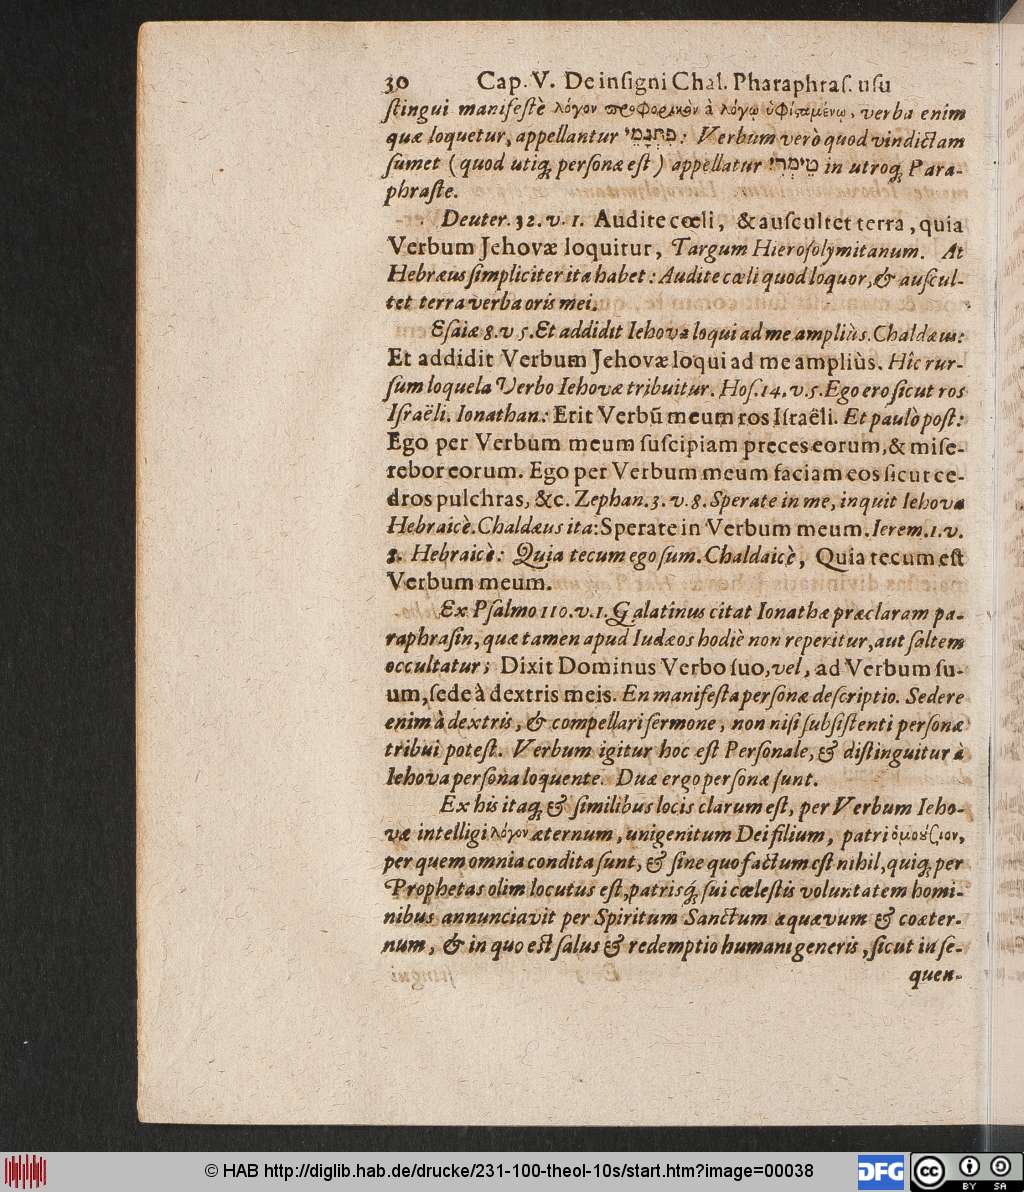 30 Cap. V. De insigni Chal. Pharaphraſ. uſu
ſtingui manifeſtè λόγον προφορικὸν à λόγῳ ὑφιϛαμένῳ, verba enim
quæ loquetur, appellantur פִּתְגָמֵי: Verbum verò quod vindictam
ſumet (quod utiq; perſonæ eſt) appellatur מֵימְרִי in utroq; Para-
phraſte.
Deuter. 32. v. 1. Audite cœli, & auſcultet terra, quia
Verbum Jehovæ loquitur, Targum Hieroſolymitanum. At
Hebræus ſimpliciter ita habet: Audite cœli quod loquor, & auſcul-
tet terra verba oris mei.
Eſaiæ 8. v 5. Et addidit Iehova loqui ad me ampliùs. Chaldæus:
Et addidit Verbum Jehovæ loqui ad me ampliùs. Hîc rur-
ſum loquela Verbo Iehovæ tribuitur. Hoſ. 14. v. 5. Ego ero ſicut ros
Iſraëli. Ionathan: Erit Verbũ meum ros Iſraëli. Et paulò poſt:
Ego per Verbum meum ſuſcipiam preces eorum, & miſe-
rebor eorum. Ego per Verbum meum faciam eos ſicut ce-
dros pulchras, &c. Zephan. 3. v. 8. Sperate in me, inquit Iehova
Hebraicè. Chaldæus ita: Sperate in Verbum meum. Ierem. 1. v.
8. Hebraicè: Quia tecum ego ſum. Chaldaicè, Quia tecum eſt
Verbum meum.
Ex Pſalmo 110. v. 1. Galatinus citat Ionathæ præclaram pa-
raphraſin, quæ tamen apud Iudæos hodiè non reperitur, aut ſaltem
occultatur; Dixit Dominus Verbo ſuo, vel, ad Verbum ſu-
um, ſede à dextris meis. En manifeſta perſonæ deſcriptio. Sedere
enim à dextris, & compellari ſermone, non niſi ſubſiſtenti perſonæ
tribui poteſt. Verbum igitur hoc eſt Perſonale, & diſtinguitur à
Iehova perſona loquente. Duæ ergo perſonæ ſunt.
Ex his itaq; & ſimilibus locis clarum eſt, per Verbum Ieho-
væ intelligi λόγον æternum, unigenitum Dei filium, patri ὁμούσιον,
per quem omnia condita ſunt, & ſine quo factum eſt nihil, quiq; per
Prophetas olim locutus eſt, patrisq́; ſui cæleſtis voluntatem homi-
nibus annunciavit per Spiritum Sanctum æquævum & coæter-
num, & in quo eſt ſalus & redemptio humani generis, ſicut in ſe-
quen-
© HAB http://diglib.hab.de/drucke/231-100-theol-10s/start.htm?image=00038
DFG
cc
BY SA